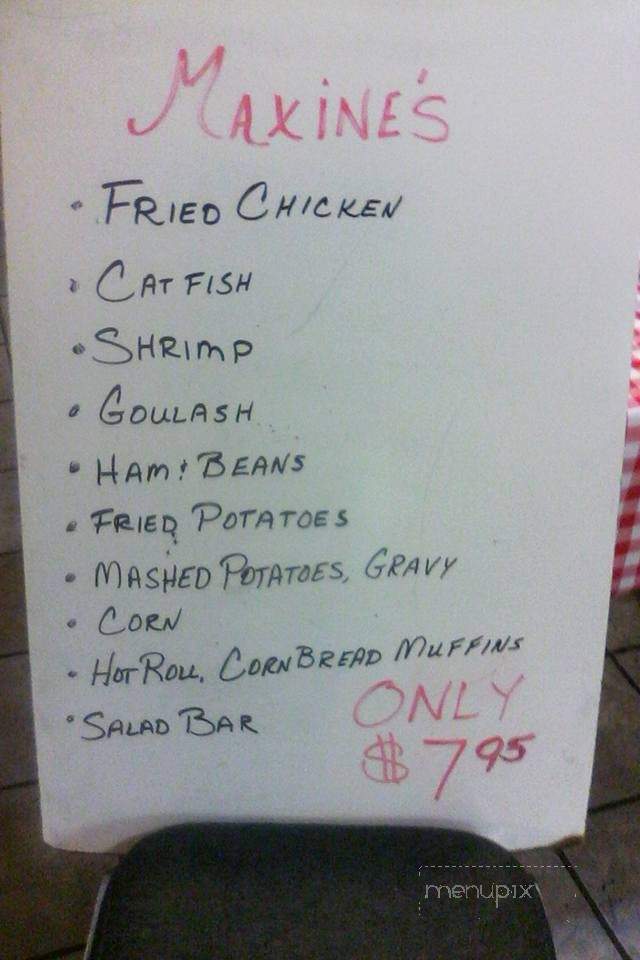 MAXINE'S
• FRIED CHICKEN
• CAT FISH
• SHRIMP
• GOULASH
• HAM & BEANS
• FRIED POTATOES
• MASHED POTATOES, GRAVY
• CORN
• HOT ROLL, CORN BREAD MUFFINS
• SALAD BAR
ONLY
$7.95
menupix